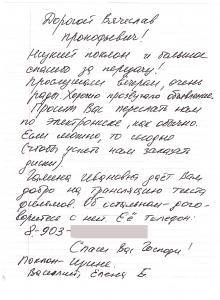 Дорогой Вячеслав
Прокофьевич!
Низкий поклон и большое
спасибо за передачу!
Прослушали вечером, очень
рады. Хорошо прозвучало объявление.
Просит Вас переслать нам
по электронке, как обычно.
Если можно, то сегодня
(чтобы успел нам записать
диски)
Галина Ивановна даёт Вам
добро на трансляцию текста
фильмов. Об остальном - дого-
воритесь с ней. Её телефон:
8-903-
Спаси Вас Господи!
Поклон - Ирине,
Василий, Елена Б